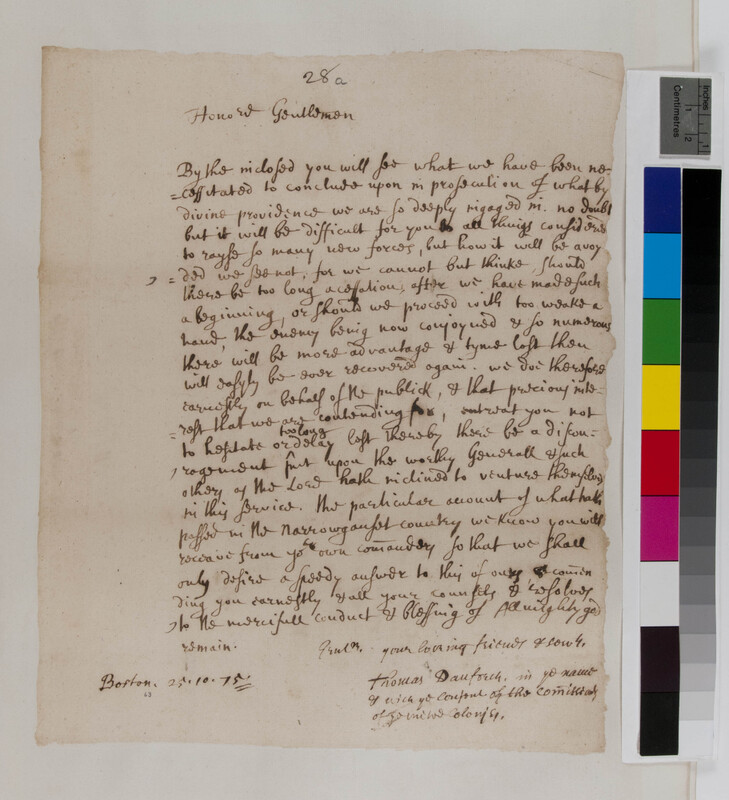 28a
Honord Gentlemen
By the inclosed you will see what we have been ne-
=cessitated to conclude upon in prosecution of what by
divine providence we are so deeply ingaged in. no doubt
but it will be difficult for you all things considered
to rayse so many new forces, but how it will be avoy
=ded we see not, for we cannot but thinke, should
there be too long a cessation, after we have made such
a beginning, or should we proceed with too weake a
hand, the enemy being now conjoyned & so numerous
there will be more advantage & tyme lost then
will easyly be ever recovered again. we doe therefore
earnestly on behalf of the publick, & that precious inte-
=rest that we are contending for, entreat you not
to hesitate or too long delay lest thereby there be a discou-
ragement put upon the worthy Generall & such
others as the Lord hath inclined to venture themselves
in this service. the particular account of what hath
passed in the Narrowganset country we know you will
receave from yor own commanders so that we shall
only desire a speedy answer to this of ours, & comen
ding you earnestly & all your counsels & resolves
to the mercifull conduct & blessing of Allmighty god
remain. your loving friends & servts.
Boston. 25. 10. 75
Thomas Danforth. in ye name
& with ye consent of the Comissrs
of ye united Colonjes.
Centimetres
1
2
Inches
1